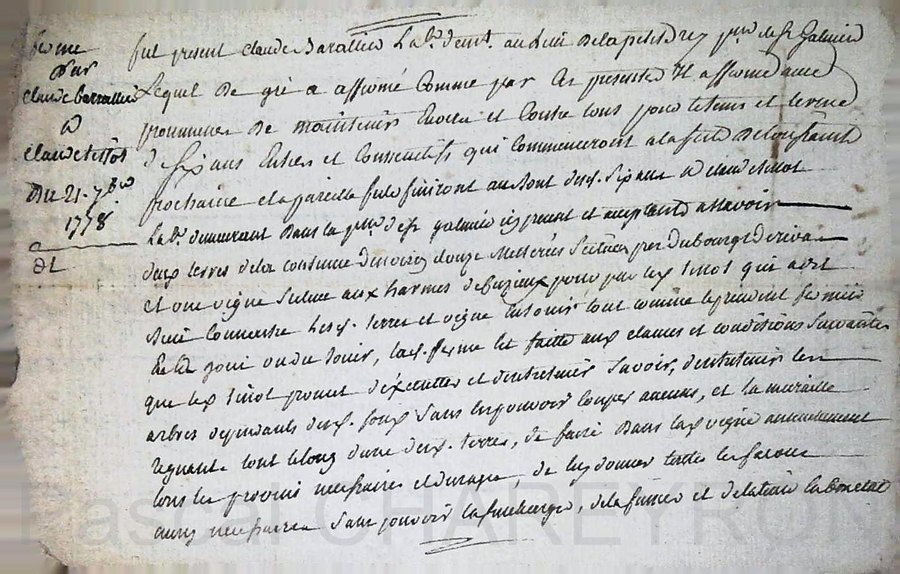 ferme
Par
Claude Barrallier
a
Claude tissot
Du 21. 7bre
1778
fut present Claude Barallier Lab.r demt. au de la petite psse de st Galmier
Lequel De gré a affermé Comme par Ces presentes Il afferme avec
promesse De maintenir Envers et Contre tous pour le tems et terme
De six ans Entiers et Consecutifs qui Commenceront a la fete De toussaint
prochaine et a pareille fete finiront au bout desd. six ans a Claude tissot
Lab.r demeurant Dans la psse de st galmier icy present et acceptant a Savoir
deux terres de la Contenue Denviron douze Metterées Situées pres du bourg de rivas
et une vigne Située aux harmes de pour par led. tissot qui a dit
bien Connoistre Lesd. terres et vigne En Jouir tout comme le precedent fermier
En a Joui ou du Jouir, lad. ferme Est faitte aux clauses et conditions Suivantes
que led. tissot promet d'Executter et d'entretenir Savoir, d'entretenir les
arbres dependants desd. fonds Sans En pouvoir Couper aucuns, et la muraille
regnante tout le long d'une desd. terres, de faire Dans lad. vigne annuellement
tous les provins necessaires et d'usage, de luy donner toutes les façons
aussy necessaires Sans pouvoir la Surcharger, de la fumer et de la tenir En bon etat
Pascal CHAREYRON